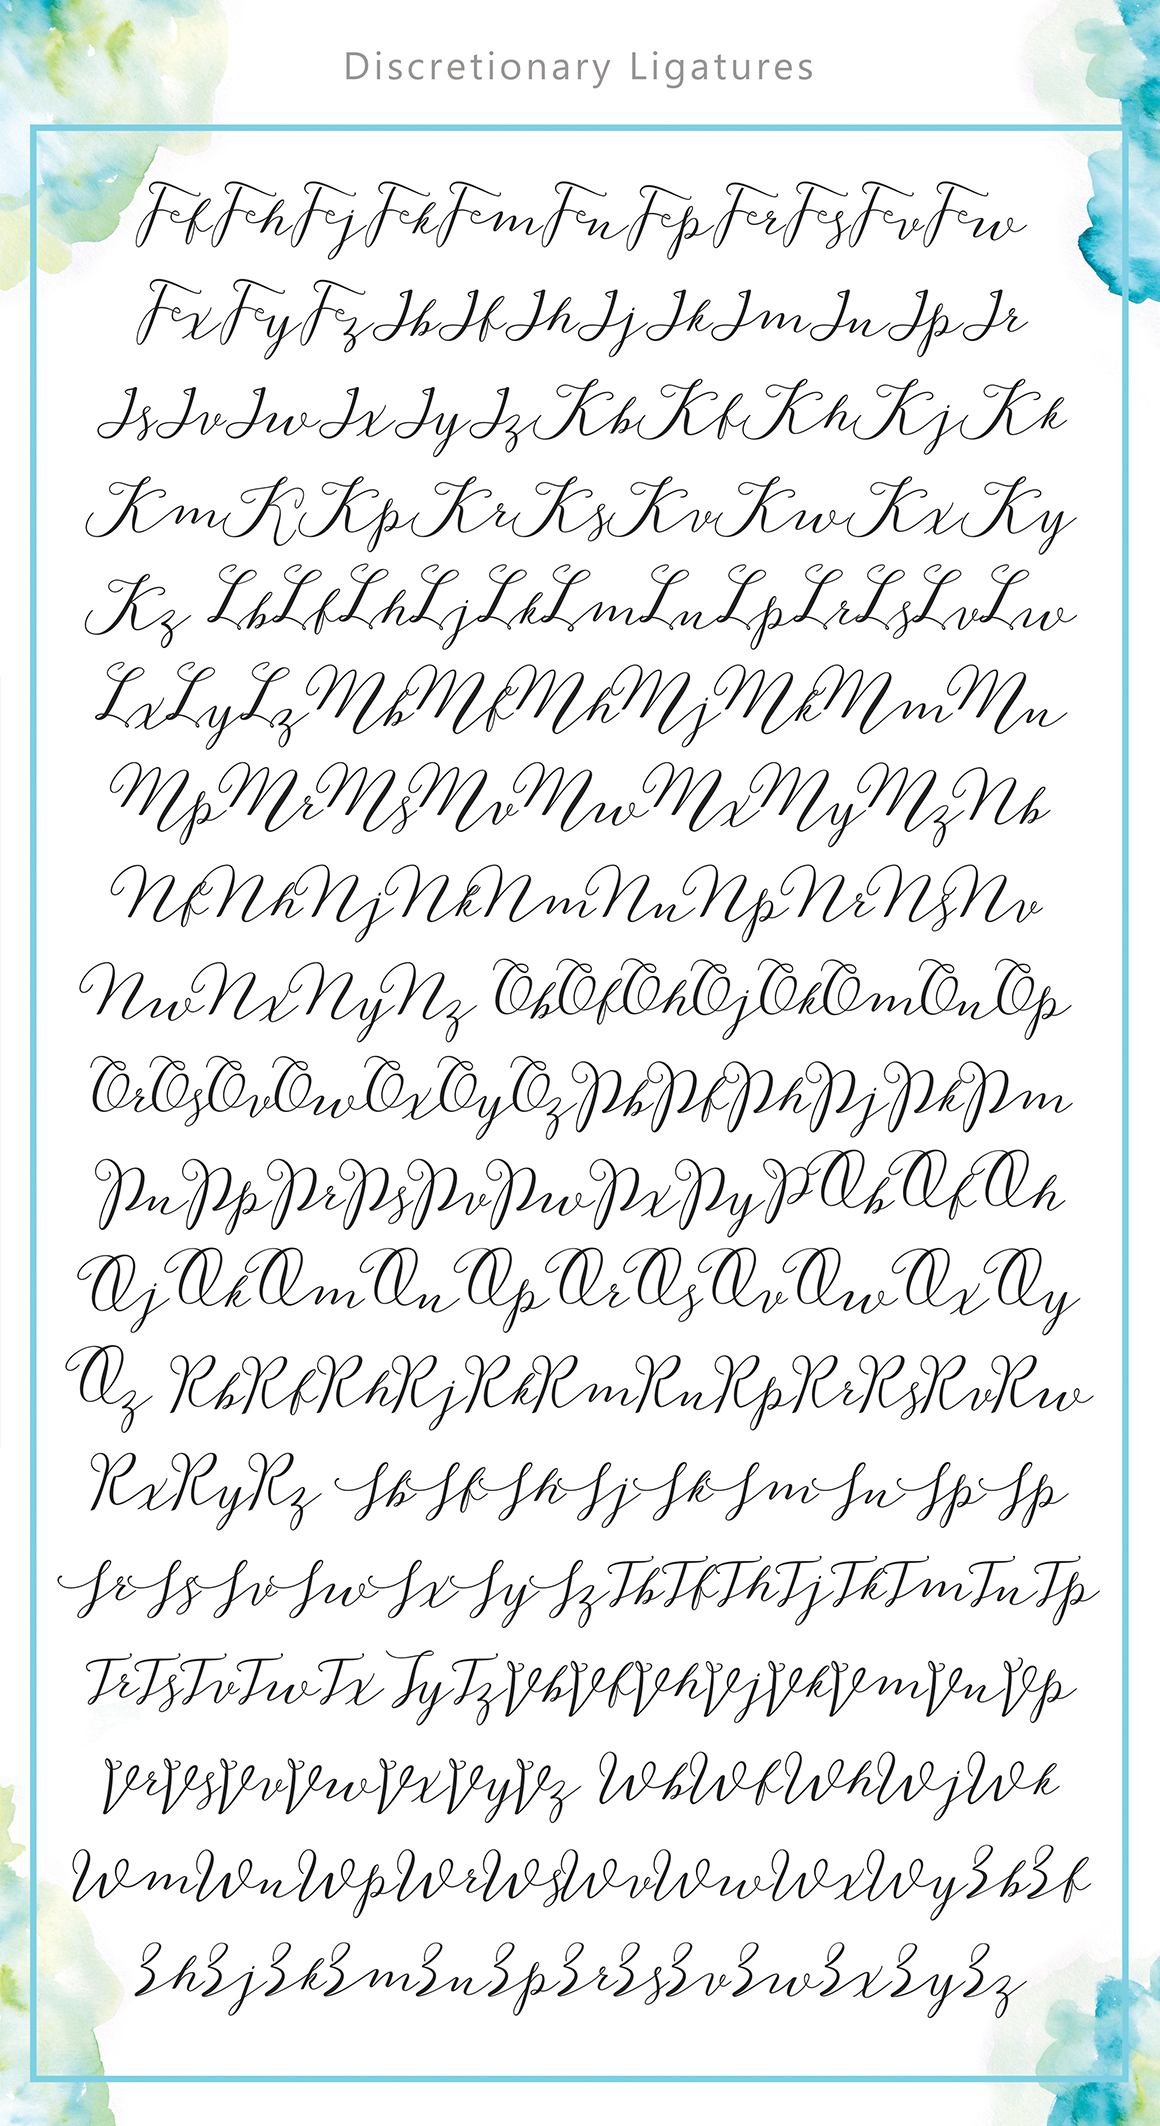 Discretionary Ligatures
Ff Fh Fj Fk Fm Fn Fp Fr Fs Fv Fw
Fx Fy Fz Jb Jf Jh Jj Jk Jm Jn Jp Jr
Js Jv Jw Jx Jy Jz Kb Kf Kh Kj Kk
Km Kp Kr Ks Kv Kw Kx Ky
Kz Lb Lf Lh Lj Lk Lm Ln Lp Lr Ls Lv Lw
Lx Ly Lz Mb Mf Mh Mj Mk Mm Mn
Mp Mr Ms Mv Mw Mx My Mz Nb
Nf Nh Nj Nk Nm Nn Np Nr Ns Nv
Nw Nx Ny Nz Ob Of Oh Oj Ok Om On Op
Or Os Ov Ow Ox Oy Oz Pb Pf Ph Pj Pk Pm
Pn Pp Pr Ps Pv Pw Px Py Qb Qf Qh
Qj Qk Qm Qn Qp Qr Qs Qv Qw Qx Qy
Qz Rb Rf Rh Rj Rk Rm Rn Rp Rr Rs Rv Rw
Rx Ry Rz Sb Sf Sh Sj Sk Sm Sn Sp Sp
Sr Ss Sv Sw Sx Sy Sz Tb Tf Th Tj Tk Tm Tn Tp
Tr Ts Tv Tw Tx Ty Tz Vb Vf Vh Vj Vk Vm Vn Vp
Vr Vs Vv Vw Vx Vy Vz Wb Wf Wh Wj Wk
Wm Wn Wp Wr Ws Wv Ww Wx Wy Zb Zf
Zh Zj Zk Zm Zn Zp Zr Zs Zv Zw Zx Zy Zz